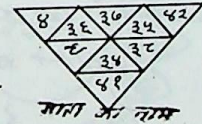 ४ ३६ ३७ ३५ ४२
३८
३४
४१
माता का नाम